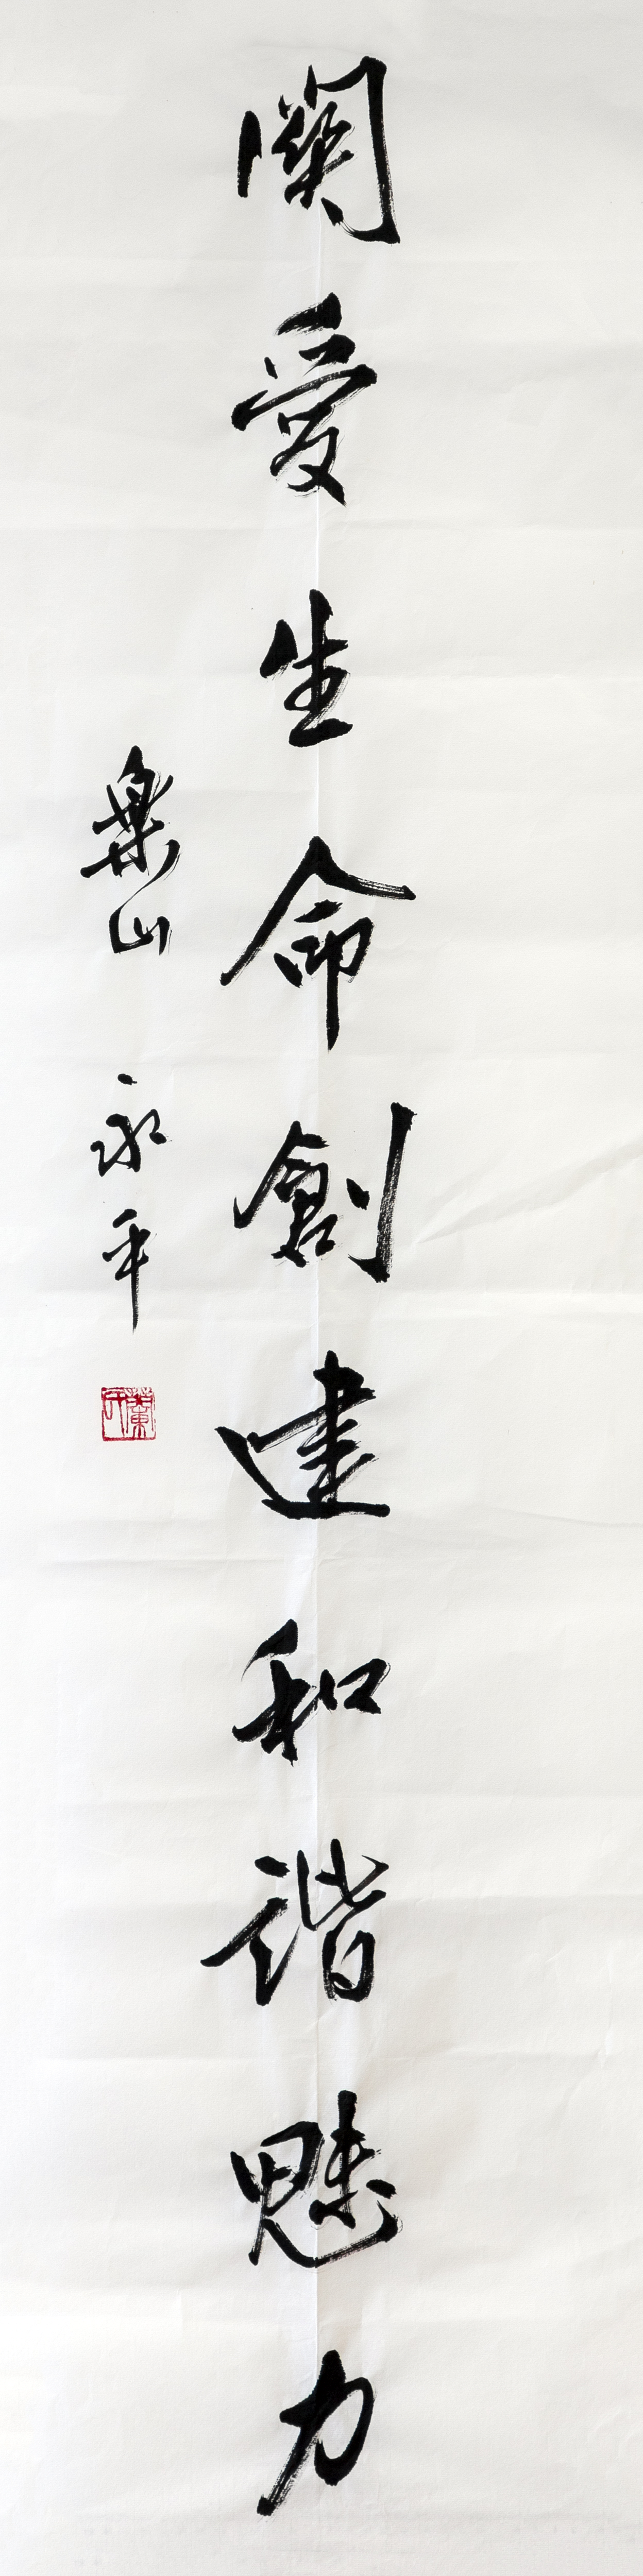 關愛生命創建和諧魅力
樂山 永平
蘭氏